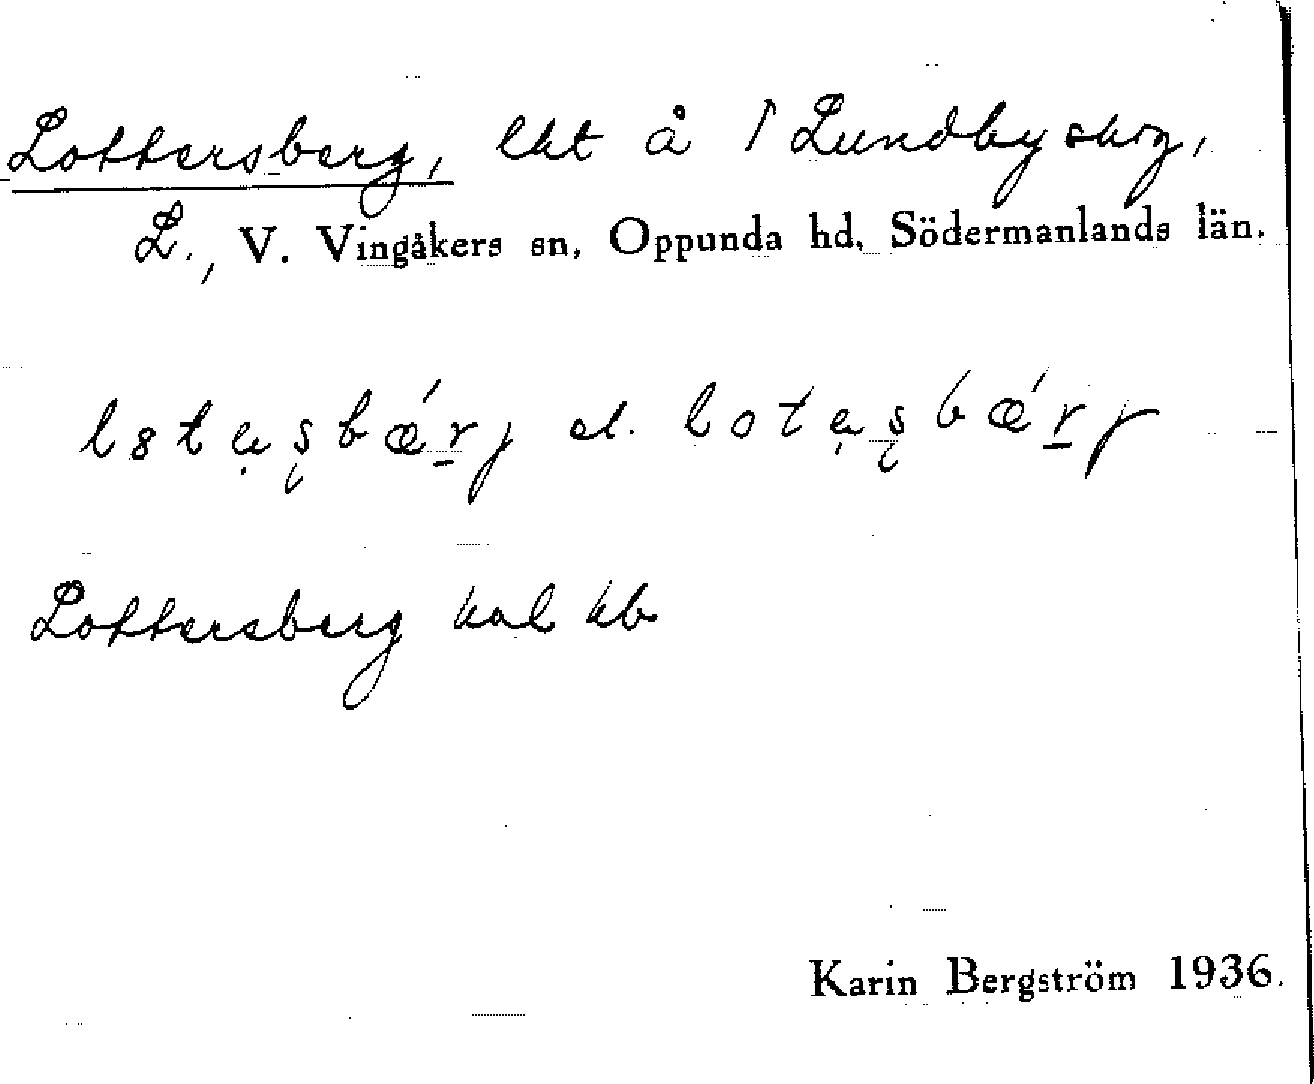 Lottersberg, lht å 1 Lundbyskog,
L., V. Vingåkers sn, Oppunda hd, Södermanlands län.
el.
Lottersberg hal kb
Karin Bergström 1936.